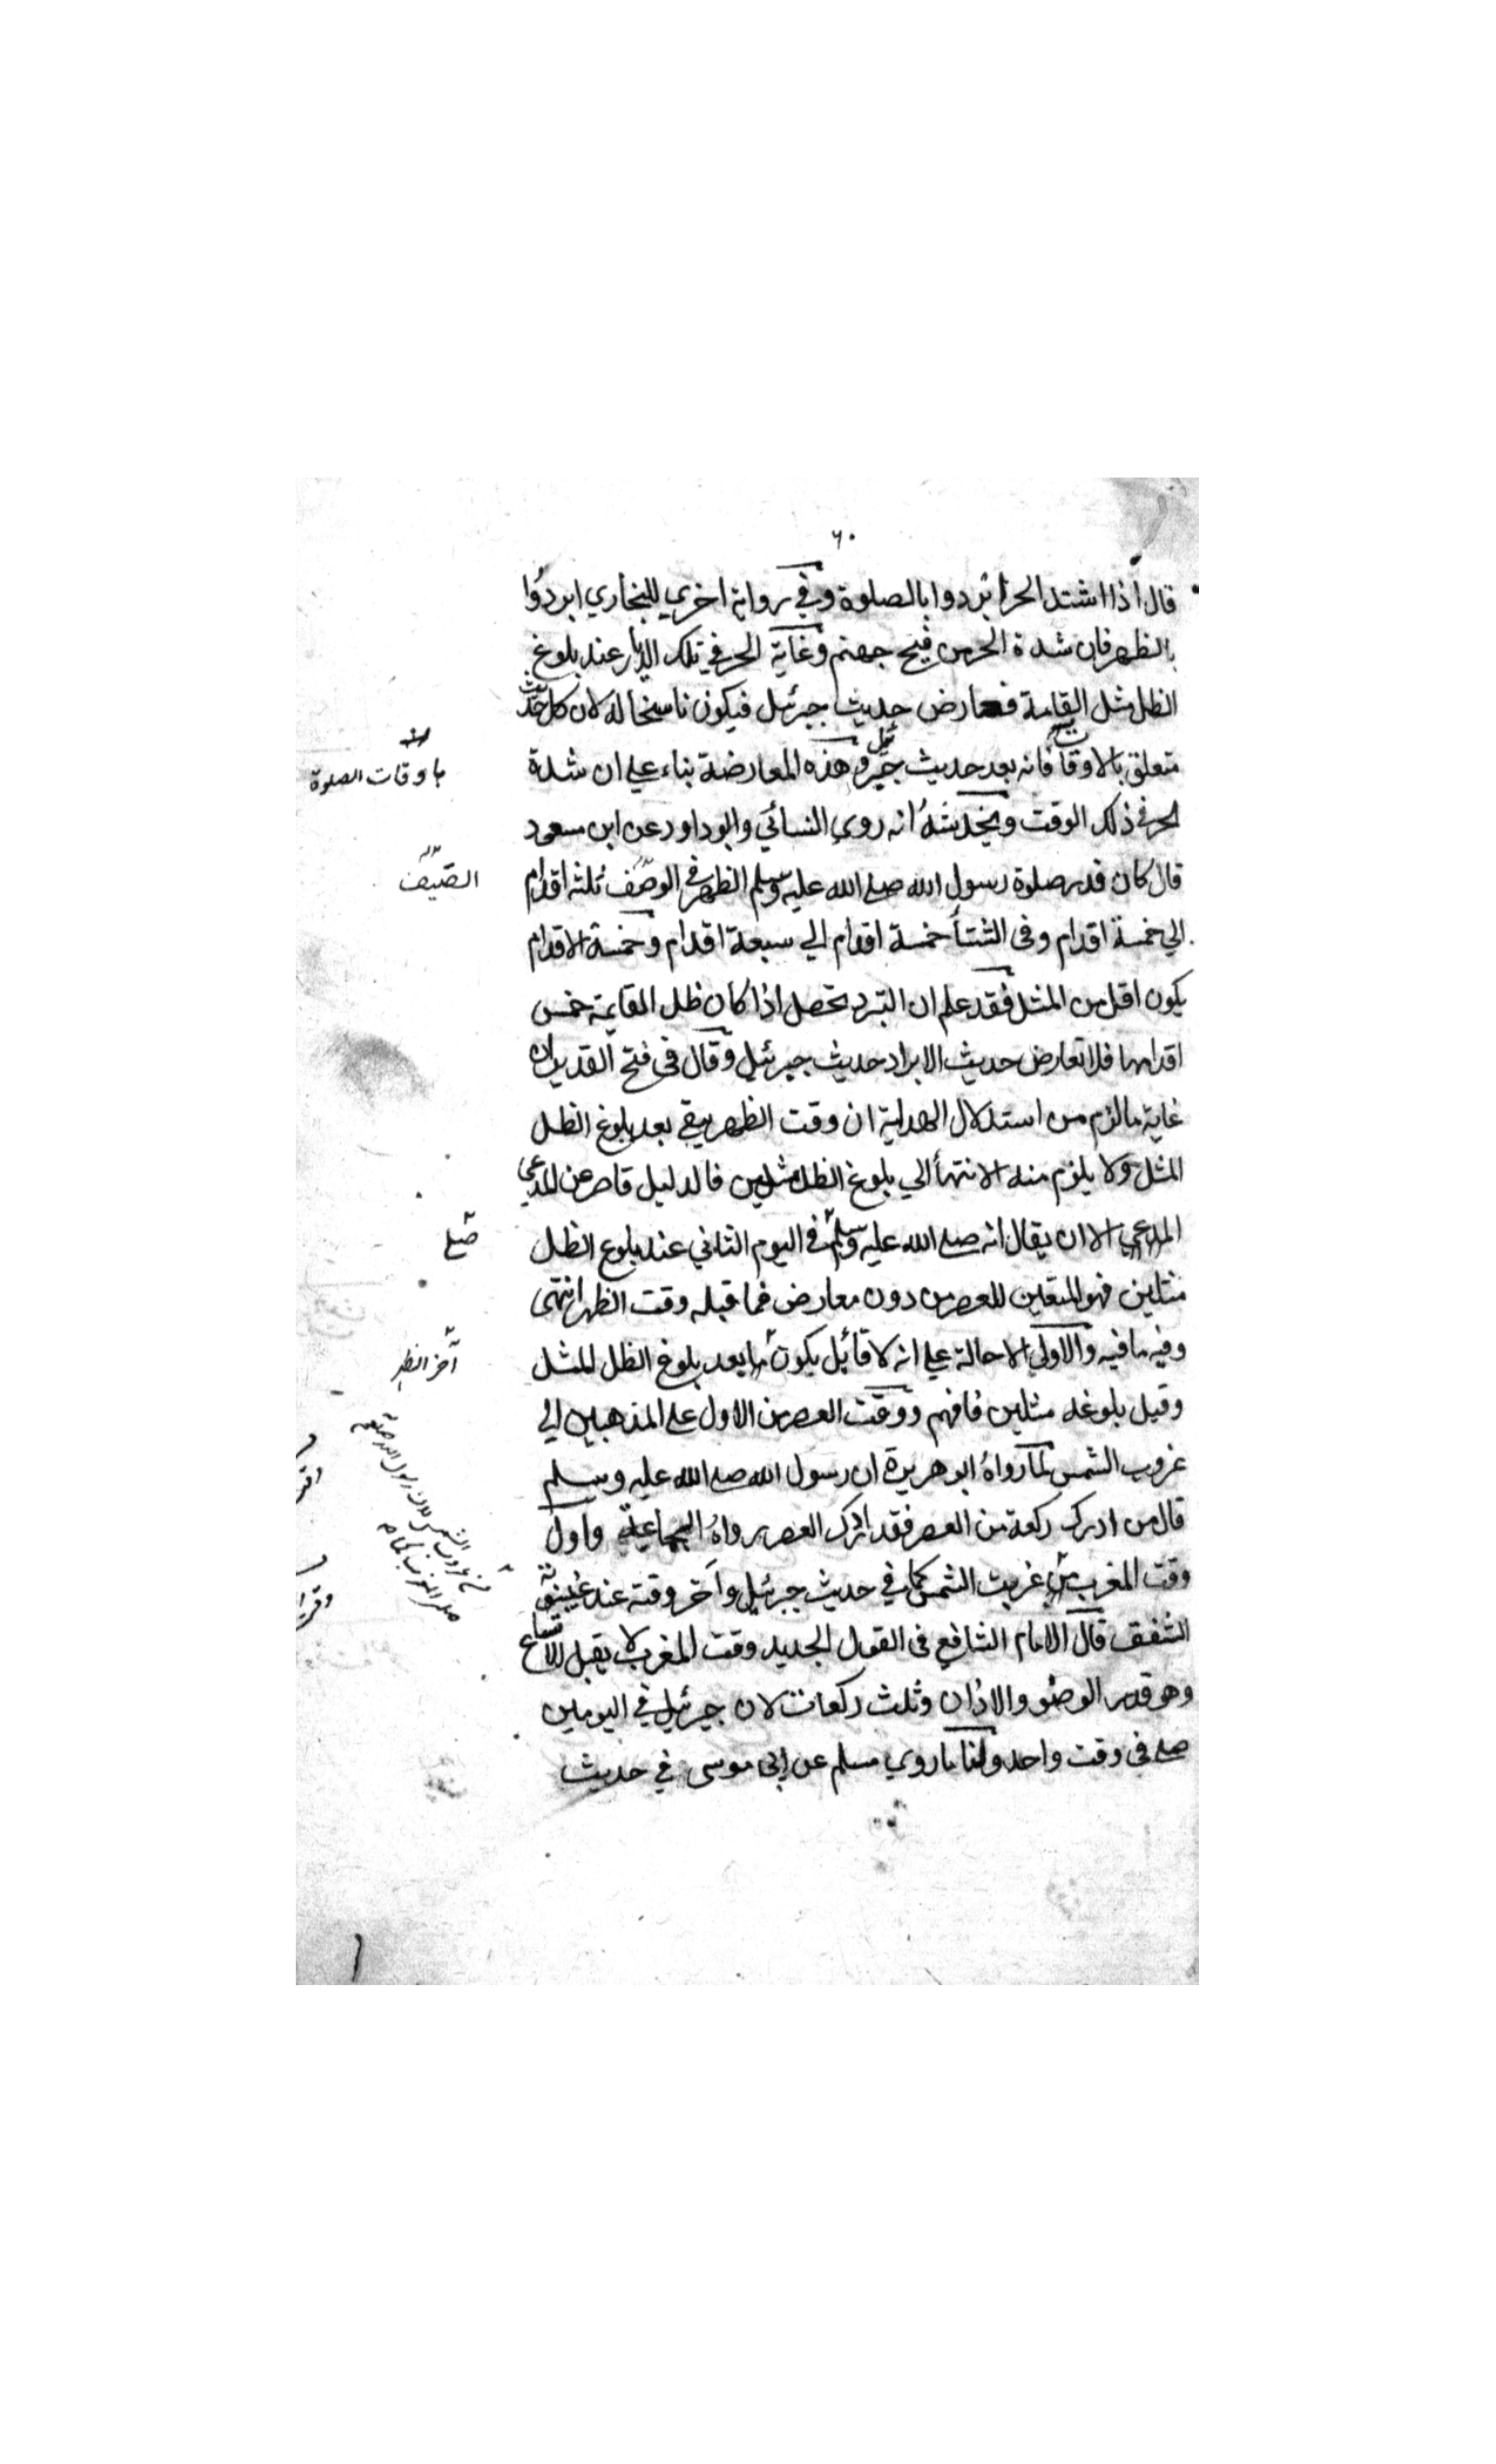 ٦٠
قال اذا اشتد الحر ابردوا بالصلوة وفي رواية اخري للبخاري ابردوا
بالظهر فان شدة الحر من فيح جهنم وغاية الحر في تلك الديار عند بلوغ
الظل مثل القامة فعارض حديث جبرئيل فيكون ناسخا له لان كل حديث
متعلق بالاوقات فانه بعد حديث جبرئيل وهذه المعارضة بناء علي ان شدة
باوقات الصلوة
الحر في ذلك الوقت ويخدشه انه روي النسائي وابو داود عن ابن مسعود
قال كان قدر صلوة رسول الله صلى الله عليه وسلم الظهر في الوصف ثلثة اقدام
الصيف
الي خمسة اقدام وفي الشتأ خمسة اقدام الي سبعة اقدام وخمسة الاقدام
يكون اقل من المثل فقد علم ان التبرد تحصل اذا كان ظل القايمة خمس
اقدامها فلا تعارض حديث الابراد حديث جبرئيل وقال في فتح القدير ان
غاية ما لزم من استدلال الهداية ان وقت الظهر يبقي بعد بلوغ الظل
المثل ولا يلزم منه الانتهأ الي بلوغ الظل مثلين فالدليل قاصر عن المدعي
المدعي الا ان يقال انه صلى الله عليه وسلم في اليوم الثاني عند بلوغ الظل
صلى
مثلين فهو المتعين للعصر من دون معارض فما قبله وقت الظهر انتهى
وفيه ما فيه والاولي الاحالة علي انه لا قائل يكون ما بعد بلوغ الظل المثل
آخر الظهر
وقيل بلوغه مثلين فافهم ووقت العصر من الاول على المذهبين الي
غروب الشمس لما رواه ابو هريرة ان رسول الله صلى الله عليه وسلم
قال من ادرك ركعة من العصر فقد ادرك العصر رواه الجماعة واول
وقت المغرب من غربت الشمس كما في حديث جبرئيل وآخر وقته عند غيبوبة
الشفق قال الامام الشافعي في القول الجديد وقت المغرب لا يقبل الاتساع
وهو قدر الوضو والاذان وثلث ركعات لان جبرئيل في اليومين
صلى في وقت واحد ولنا ما روي مسلم عن ابي موسى في حديث